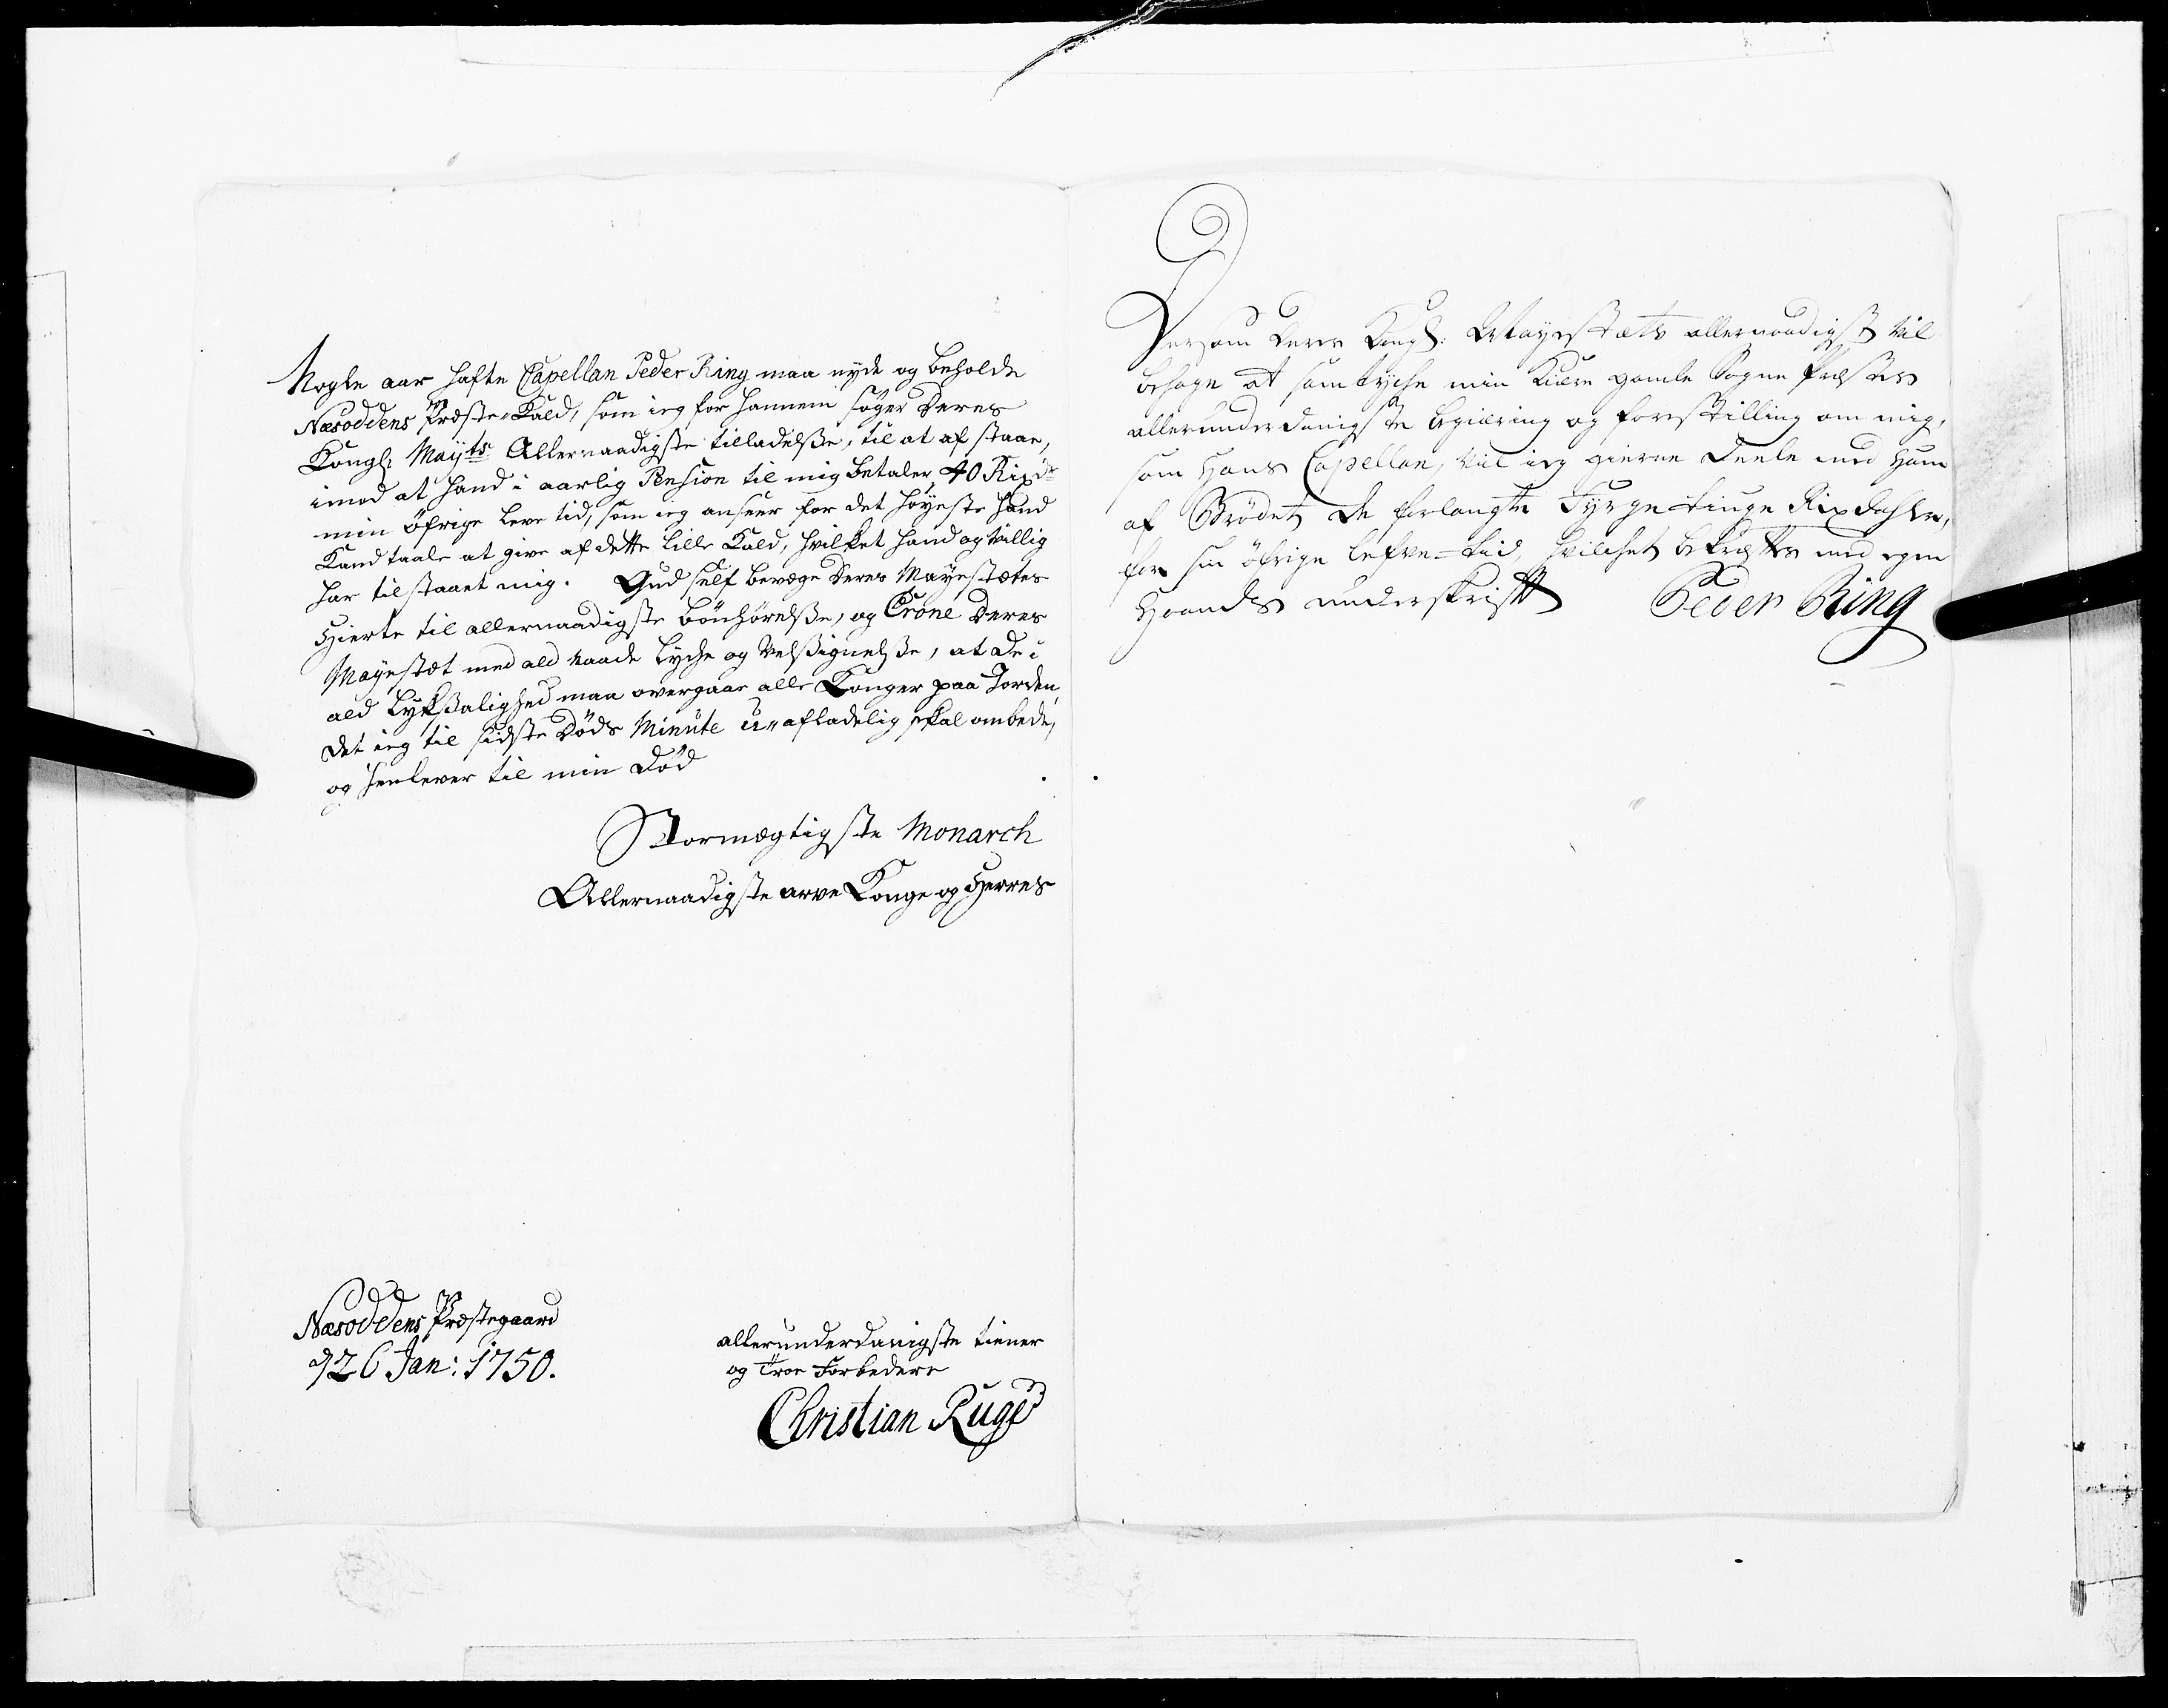 Nogle aar hafte Capellan Peder Ring maa nyde og beholde
Næsoddens Præste-Kald, som ieg for hannem søger Deres
Kongl: Mayts: Allernaadigste tilladelsse, til at af staae,
imod at hand i aarlig Pension til mig betaler 40 Rixdr
min øfrige leve tid, som ieg anseer for det høyeste hand
Kand taale at give af dette lille Kald, hvilket hand og villig
har tilstaaet mig. Gud self bevæge Deres Mayestætes
Hierte til allernaadigste bönhørelsse, og Crone Deres
Mayestæt med ald naade lyche og Velssignelsse, at De i
ald lyksalighed maa overgaae alle Konger paa Jorden,
det ieg til sidste Døds Minute u-afladelig skal ombede,
og henlever til min Død
Stormægtigste Monarch
Allernaadigste arve Konge og Herres
Næsoddens Præstegaard
d 26 Jan: 1750.
allerunderdanigste tiener
og Troe Forbedere
Christian Ruge
Dersom Deres Kongl: Mayestæts allernaadigst vil
behage at samtyche min Kiære gamle Sogne Præstes
allerunderdanigste begiæring og forestilling om mig,
som Hans Capellan, vil ieg gierne deele med Ham
af Brødet de forlangte Fyrgetiuge Rixdahler,
for sin øfrige lefve-tid, hvilchet bekræftes med egen
Haands underskrift Peder Ring